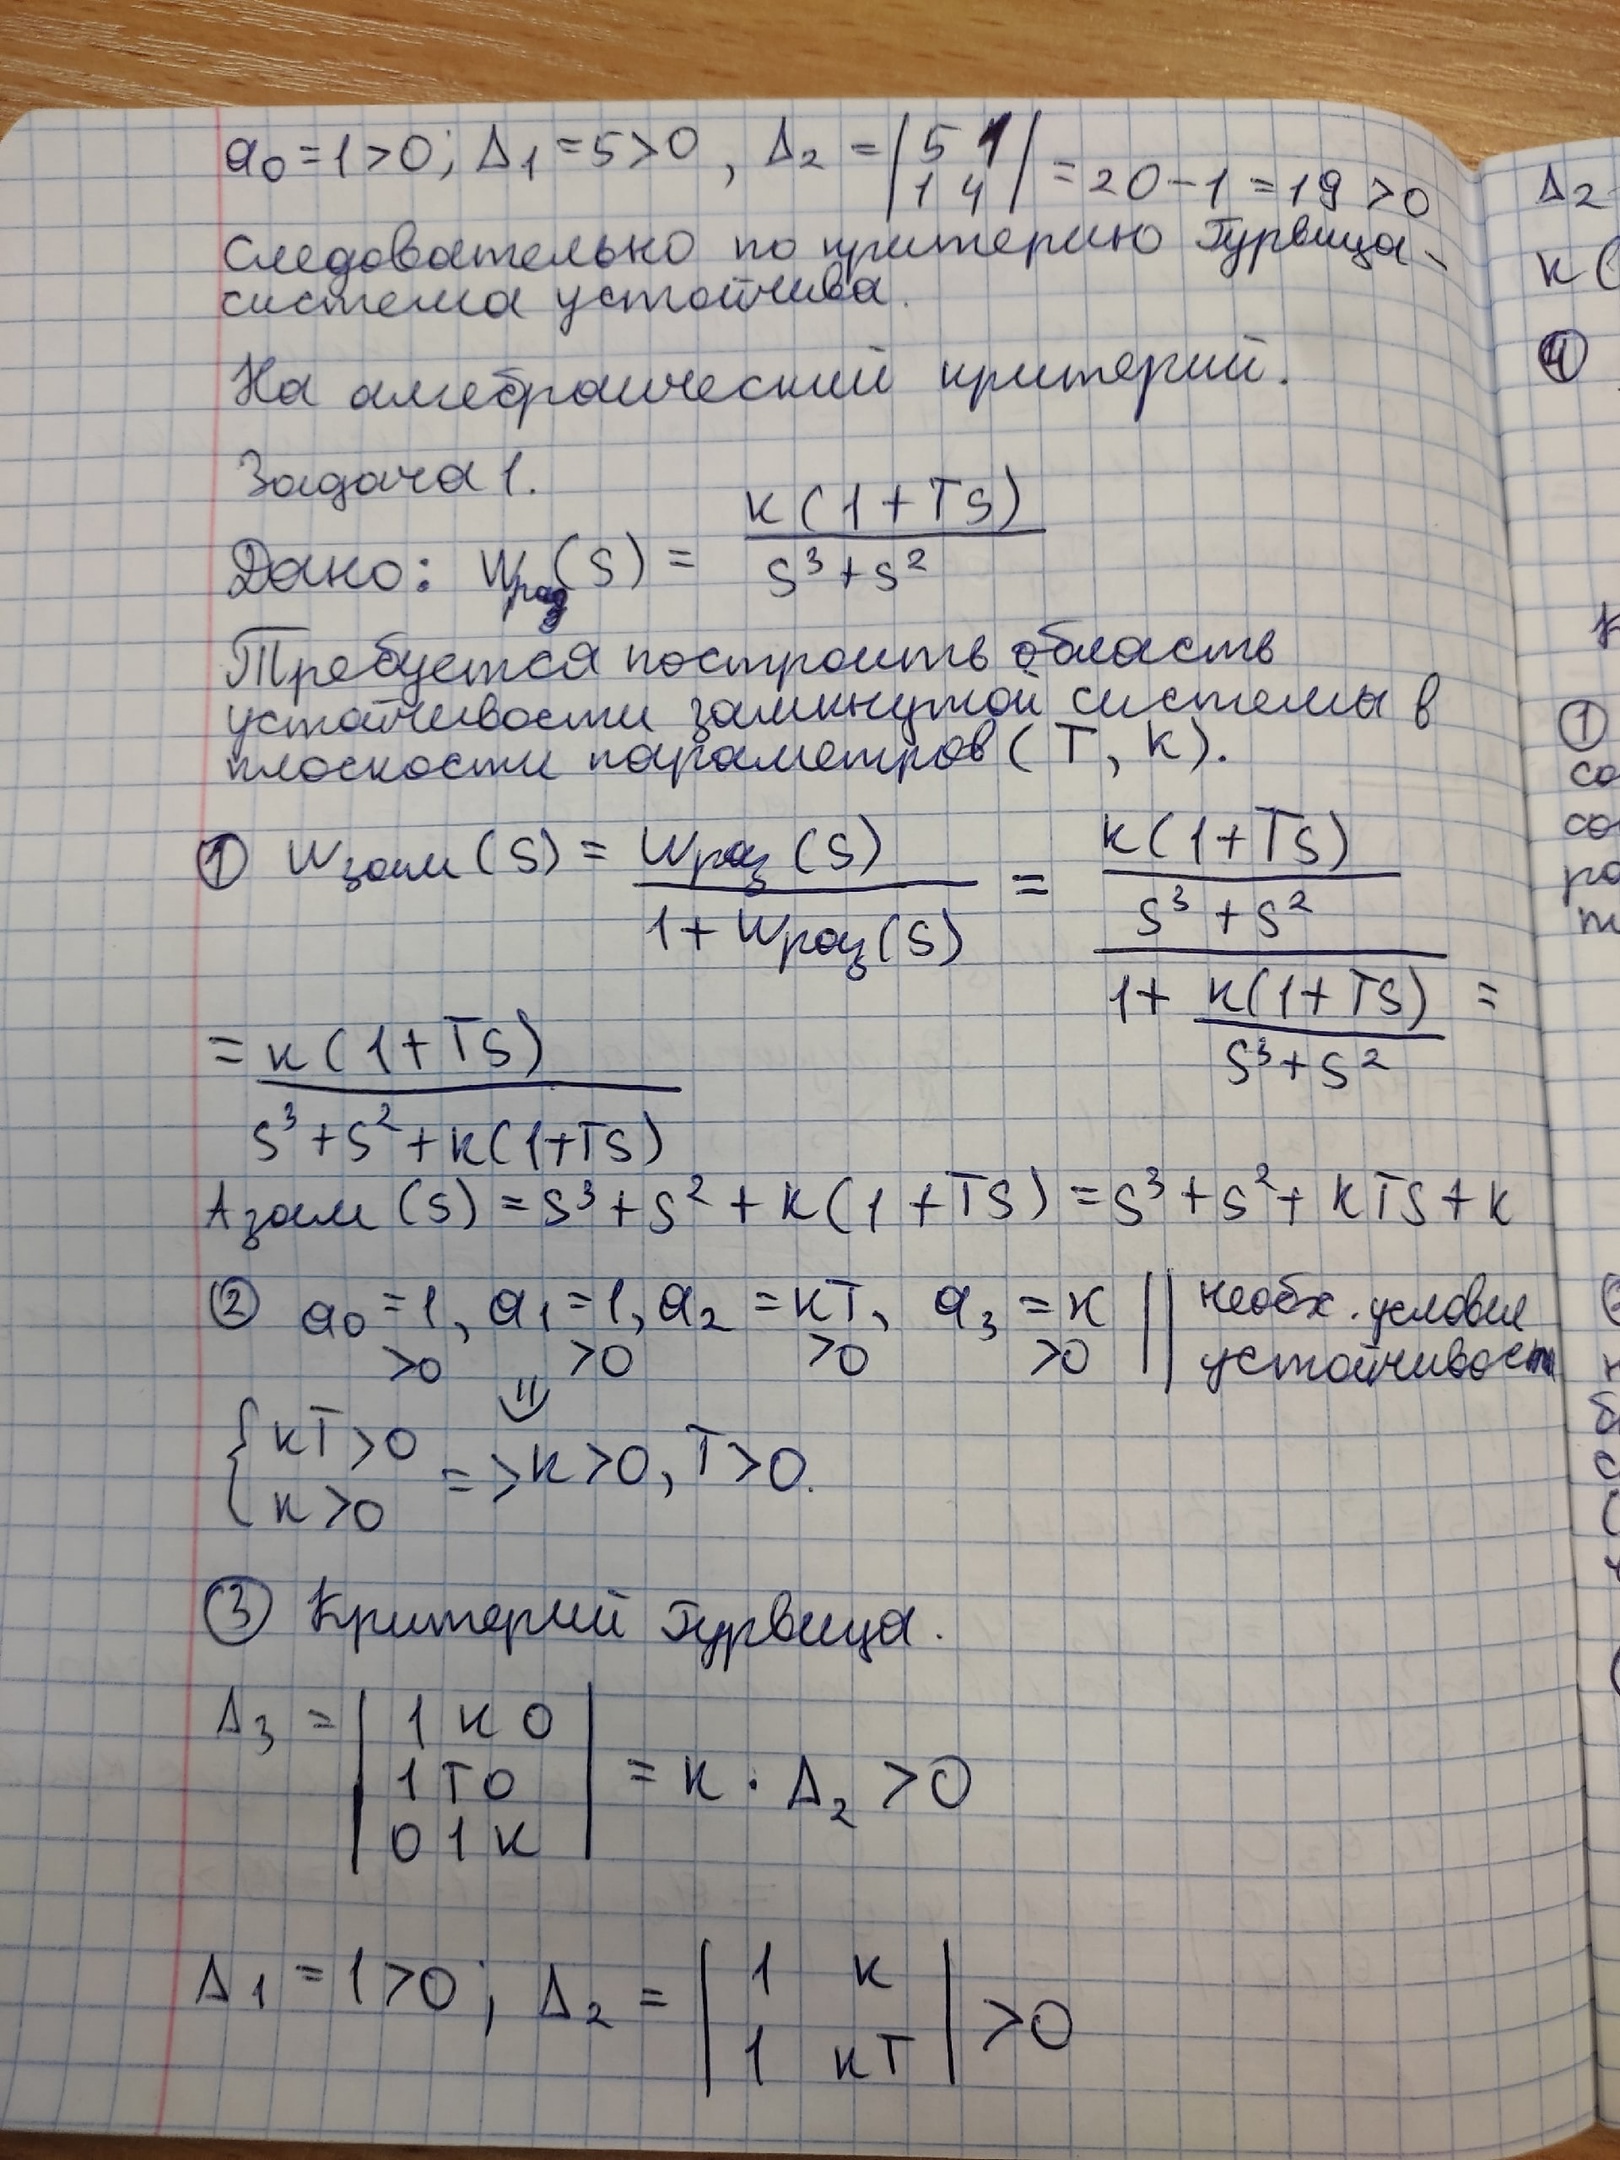 a₀ = 1 > 0; Δ₁ = 5 > 0, Δ₂ = |5 1|
|1 4| = 20 - 1 = 19 > 0
Следовательно по критерию Гурвица -
система устойчива.
На алгебраический критерий.
Задача 1.
Дано: Wраз(s) = k(1+Ts) / s³+s²
Требуется построить область
устойчивости замкнутой системы в
плоскости параметров (T, k).
① Wзам(s) = Wраз(s) / 1+Wраз(s) = (k(1+Ts) / s³+s²) / (1+ k(1+Ts) / s³+s²) =
= k(1+Ts) / s³+s²+k(1+Ts)
Aзам(s) = s³+s²+k(1+Ts) = s³+s²+kTs+k
② a₀ = 1, a₁ = 1, a₂ = kT, a₃ = k || необх. условие
>0 >0 >0 >0 || устойчивости
{ kT > 0
k > 0 => k > 0, T > 0.
③ Критерий Гурвица.
Δ₃ = | 1 k 0 |
| 1 T 0 | = k · Δ₂ > 0
| 0 1 k |
Δ₁ = 1 > 0; Δ₂ = | 1 k |
| 1 kT | > 0
Δ₂
k(
④
①
со